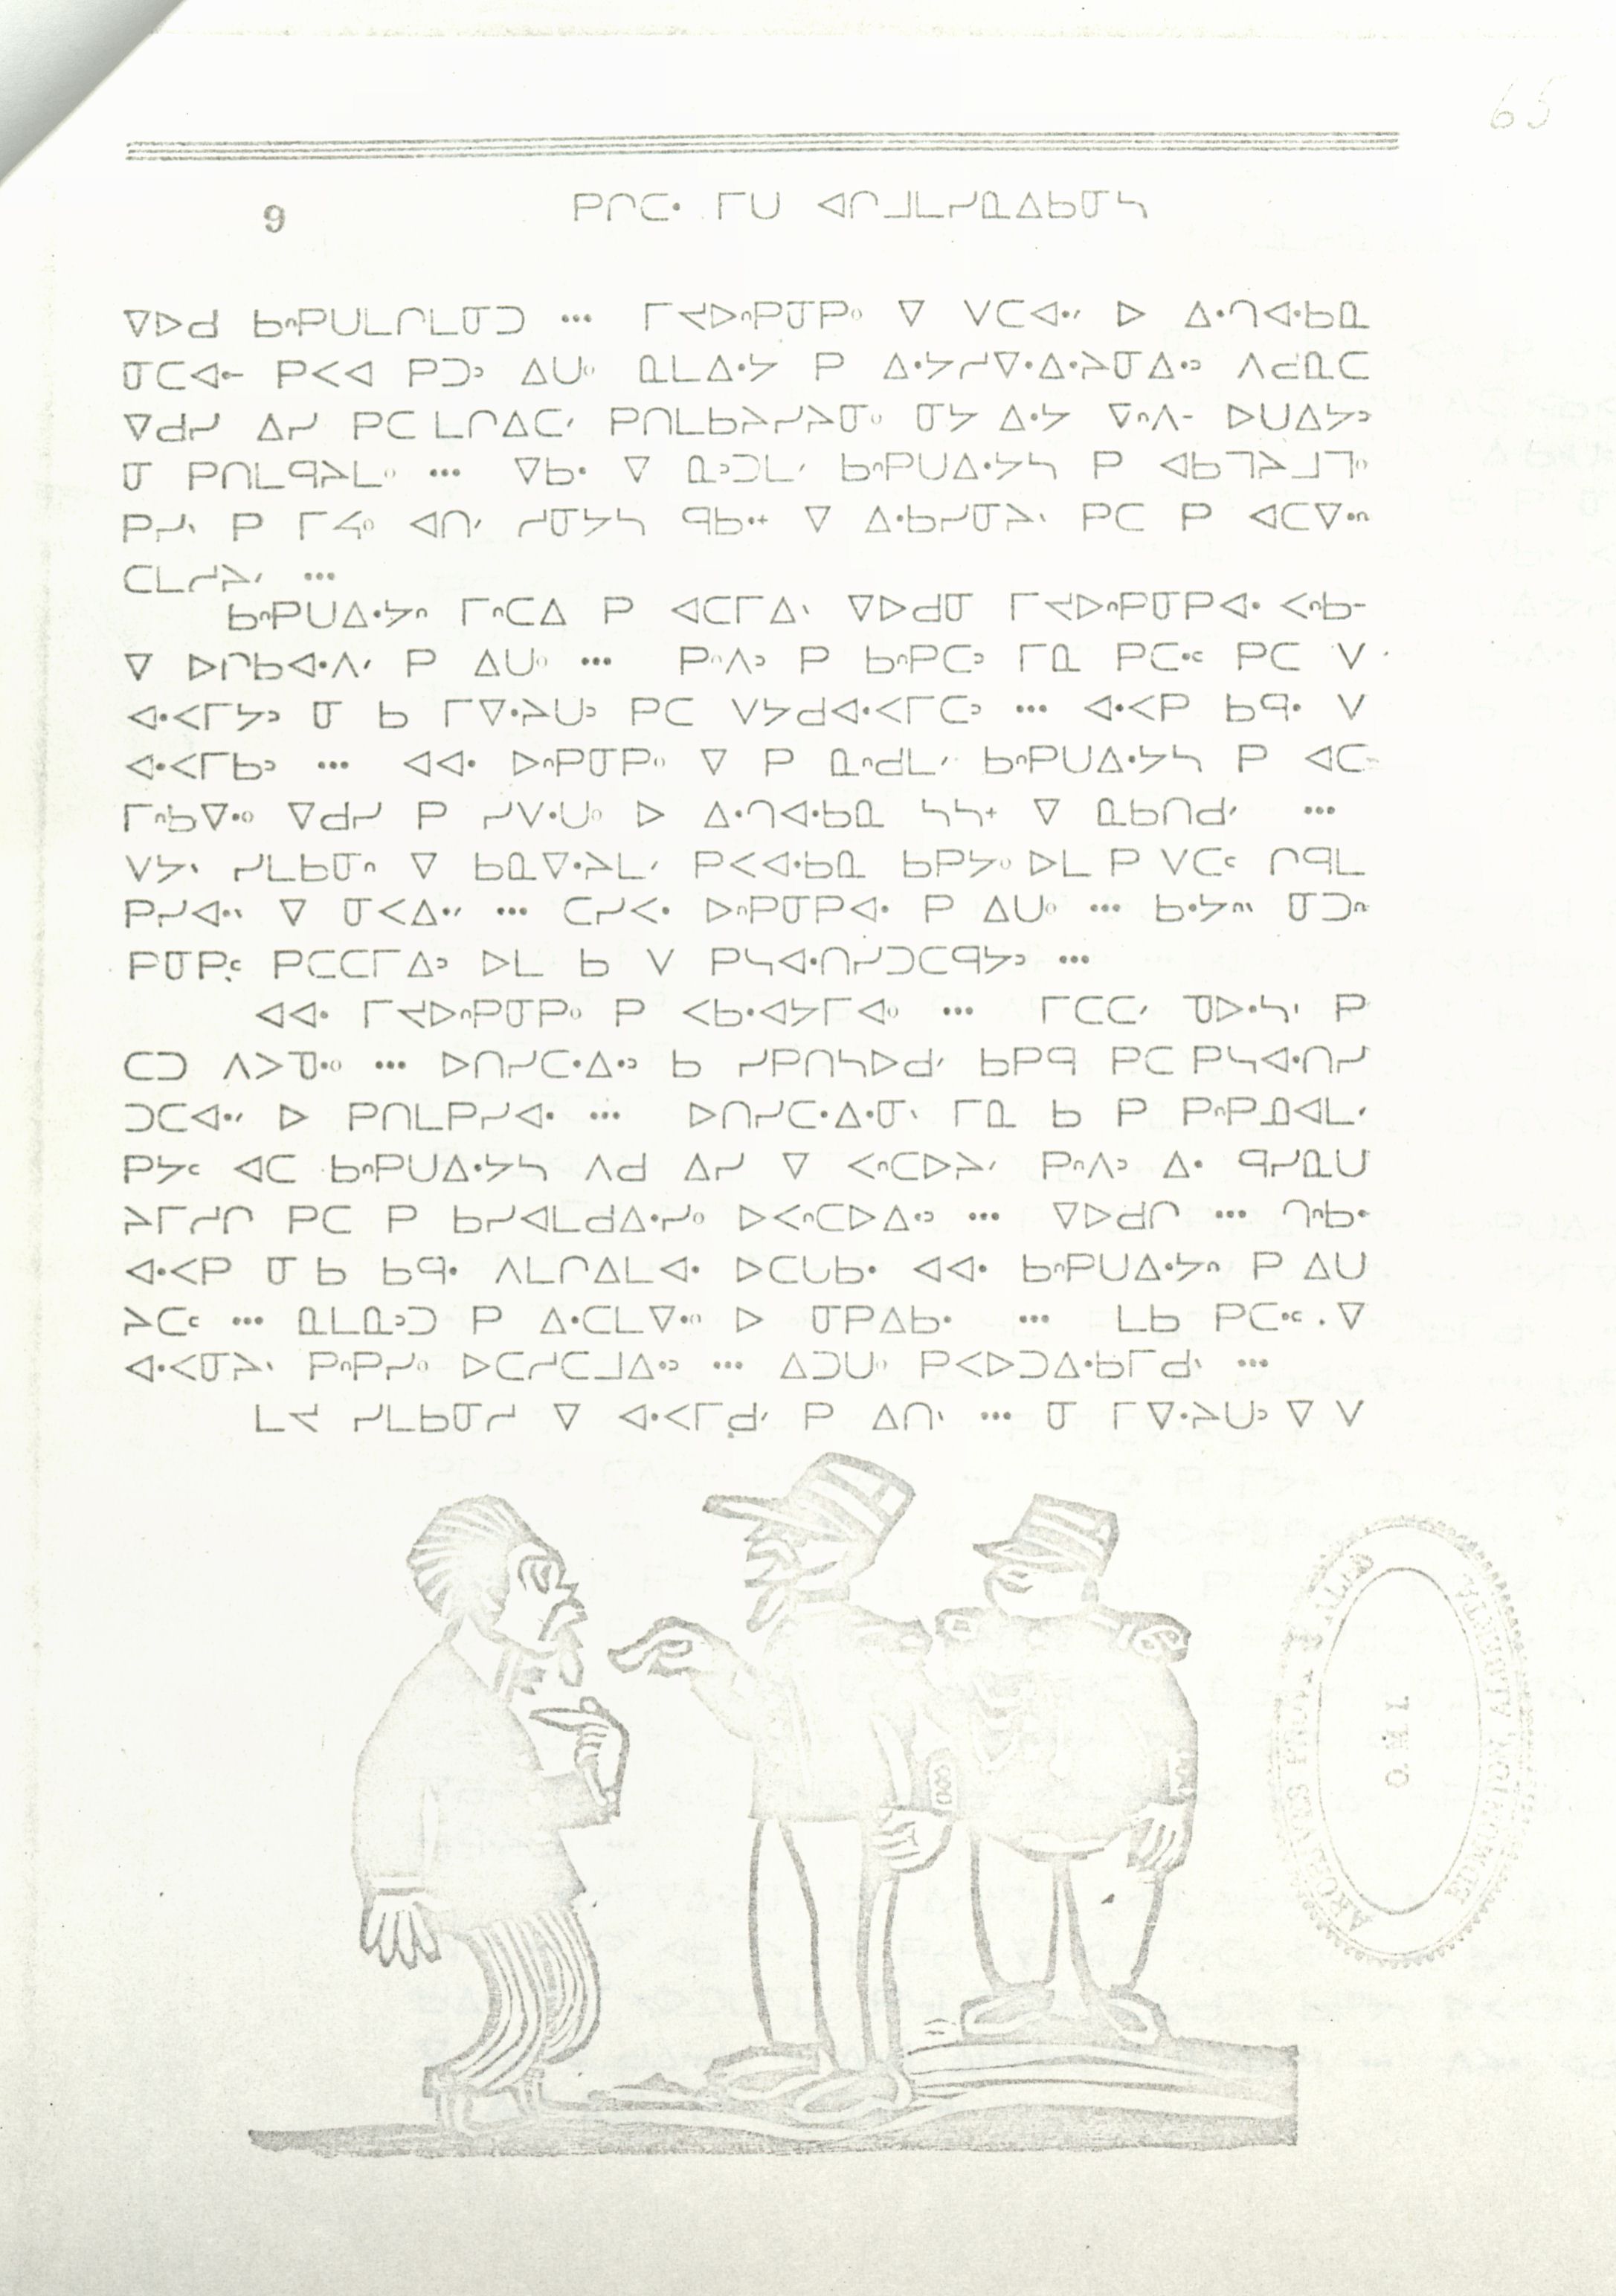 65
9 ᑭᒋᑕᐧ ᒥᑌ ᐊᒋᒧᒪᓯᓇᐃᑲᓂᓴ
ᐁᐅᑯ ᑲᐢᑭᑌᒪᒋᒪᓂᑐ ... ᒥᔪᐅᐢᑭᓂᑭᐤ ᐁ ᐯᑕᐊᐧᐟ ᐅ ᐃᐧᒉᐊᐧᑲᓇ
ᓂᑕᐊᐧᐨ ᑭᐸᐊ ᑭᑐᐣ ᐃᑌᐤ ᓇᒪᐃᐧᔭ ᑭ ᐃᐧᔭᓯᐁᐧᐃᐧᔨᓂᐃᐧᐣ ᐱᑯᓇᑕ
ᐁᑯᓯ ᐃᓯ ᑭᑕ ᒪᒋᐃᑕᐟ ᑭᑎᒪᑲᔨᓯᔨᓂᐤ ᓂᔭ ᐃᐧᔭ ᐁᐢᐱᐨ ᐅᑌᐃᔭᐣ
ᓂ ᑭᑎᒪᑫᔨᒪᐤ ... ᐁᑲᐧ ᐁ ᓇᐣᑐᒪᐟ ᑲᐢᑭᑌᐃᐧᔭᓴ ᑭ ᐊᑲᔦᔨᒧᒣᐤ
ᑭᓯᐠ ᑭ ᒥᔦᐤ ᐊᑎᐟ ᓯᓂᔭᓴ ᑫᑲᐧᐩ ᐁ ᐃᐧᑲᓯᓂᔨᐠ ᑭᑕ ᑭ ᐊᑕᐁᐧᐢ
ᑕᒪᓱᔨᐟ ...
ᑲᐢᑭᑌᐃᐧᔭᐢ ᒥᐢᑕᐃ ᑭ ᐊᑕᒥᐃᐠ ᐁᐅᑯᓂ ᒥᔪᐅᐢᑭᓂᑭᐊᐧ ᐸᐢᑲᐨ
ᐁ ᐅᒋᑲᐊᐧᐱᐟ ᑭ ᐃᑌᐤ ... ᑭᐢᐱᐣ ᑭ ᑲᐢᑭᑕᐣ ᒥᓇ ᑭᑕᐧᑦ ᑭᑕ ᐯ
ᐊᐧᐸᒥᔭᐣ ᓂ ᑲ ᒥᐁᐧᔨᑌᐣ ᑭᑕ ᐯᔭᑯᐊᐧᐸᒥᑕᐣ ... ᐊᐧᐸᑭ ᑲᑫᐧ ᐯ
ᐊᐧᐸᒥᑲᐣ ... ᐊᐊᐧ ᐅᐢᑭᓂᑭᐤ ᐁ ᑭ ᓇᐢᑯᒪᐟ ᑲᐢᑭᑌᐃᐧᔭᓴ ᑭ ᐊᑕ
ᒥᐢᑲᐁᐧᐤ ᐁᑯᓯ ᑭ ᓯᐯᐧᑌᐤ ᐅ ᐃᐧᒉᐊᐧᑲᓇ ᓴᓴᐩ ᐁ ᓇᑲᑎᑯᐟ ...
ᐯᔭᐠ ᓯᒪᑲᓂᐢ ᐁ ᑲᓇᐁᐧᔨᒪᐟ ᑭᐸᐊᐧᑲᓇ ᑲᑭᔭᐤ ᐅᒪ ᑭ ᐯᑕᑦ ᒋᑫᒪ
ᑭᓯᐊᐧᐠ ᐁ ᓂᐸᐃᐧᐟ ... ᑕᓯᐸᐧ ᐅᐢᑭᓂᑭᐊᐧ ᑭ ᐃᑌᐤ ... ᑲᐧᔭᐢᐠ ᓂᑐᐢ
ᑭᓂᑭᑦ ᑭᑕᑕᒥᐃᐣ ᐅᒪ ᑲ ᐯ ᑭᓴᐊᐧᑎᓯᑐᑕᑫᔭᐣ ...
ᐊᐊᐧ ᒥᔪᐅᐢᑭᓂᑭᐤ ᑭ ᐸᑲᐧᐊᔭᒥᐊᐤ ... ᒥᑕᑕᐟ ᑯᐅᐧᓴᐠ ᑭ
ᑕᑐ ᐱᐳᓀᐧᐤ ... ᐅᑎᓯᑕᐧᐃᐧᐣ ᑲ ᓯᑭᑎᓴᐅᑯᐟ ᑲᑭᑫ ᑭᑕ ᑭᓴᐊᐧᑎᓯ
ᑐᑕᐊᐧᐟ ᐅ ᑭᑎᒪᑭᓯᐊᐧ ... ᐅᑎᓯᑕᐧᐃᐧᓂᐠ ᒥᓇ ᑲ ᑭ ᑭᐢᑭᓄᐊᒪᐟ
ᑭᔭᑦ ᐊᑕ ᑲᐢᑭᑌᐃᐧᔭᓴ ᐱᑯ ᐃᓯ ᐁ ᐸᐢᑕᐅᔨᐟ ᑭᐢᐱᐣ ᐃᐧ ᑫᓯᓇᑌ
ᔨᒥᓱᒋ ᑭᑕ ᑭ ᑲᓯᐊᒪᑯᐃᐧᓯᐤ ᐅᐸᐢᑕᐅᐃᐧᐣ ... ᐁᐅᑯᒋ ... ᒉᐢᑲᐧ
ᐊᐧᐸᑭ ᓂ ᑲ ᑲᑫᐧ ᐱᒪᒋᐃᒪᐊᐧ ᐅᑕᒐᑲᐧ ᐊᐊᐧ ᑲᐢᑭᑌᐃᐧᔭᐢ ᑭ ᐃᑌ
ᔨᑕᑦ ... ᓇᒪᓇᐣᑐ ᑭ ᐃᐧᑕᒪᐁᐧᐤ ᐅ ᓂᑭᐃᑲᐧ ... ᒪᑲ ᑭᑕᐧᑦ ᐁ
ᐊᐧᐸᓂᔨᐠ ᑭᐢᑭᓯᐤ ᐅᑕᓱᑕᒧᐃᐧᐣ ... ᐃᑐᑌᐤ ᑭᐸᐅᑐᐃᐧᑲᒥᑯᐠ ...
ᒪᔪ ᓯᒪᑲᓂᓱ ᐁ ᐊᐧᐸᒥᑯᐟ ᑭ ᐃᑎᐠ ... ᓂ ᒥᐁᐧᔨᑌᐣ ᐁ ᐯ
ARCHIVES PROV ALTA EDMONTON, ALBERTA
O. M. I.